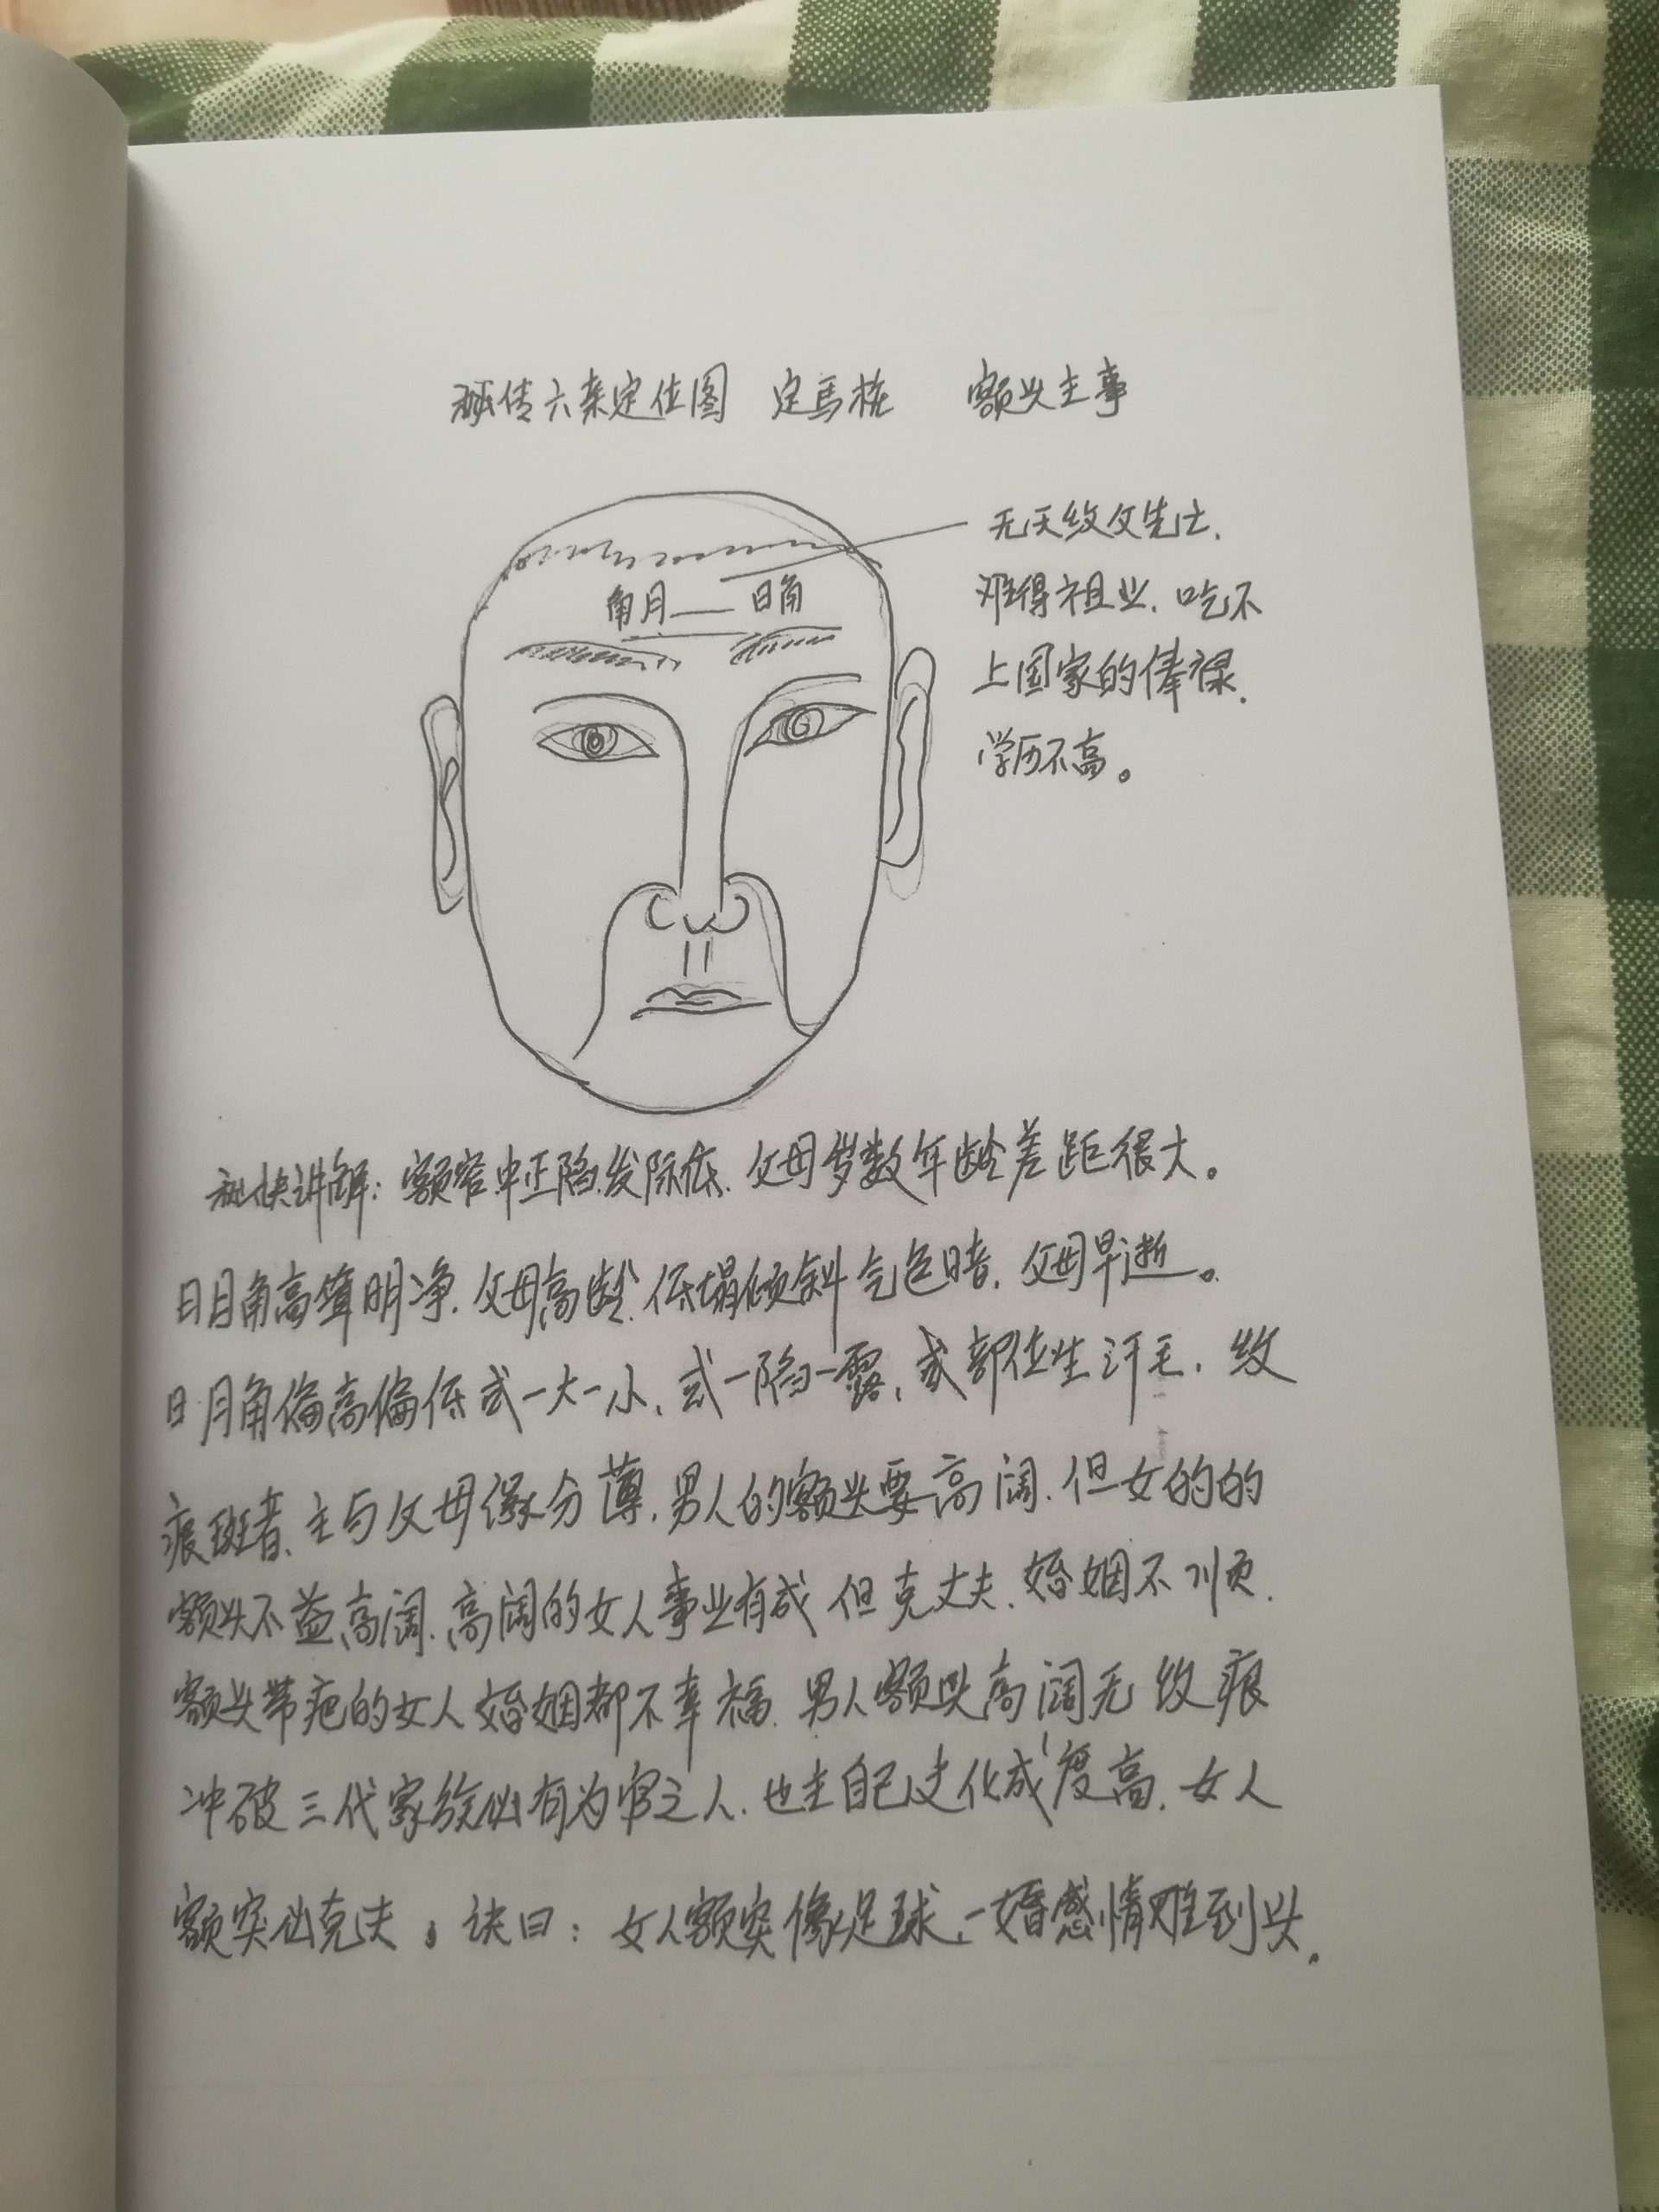 秘传六亲定位图 定馬桩 额头主事
无天纹父先亡.
难得祖业. 吃不
上国家的俸禄.
学历不高。
角月 日角
秘诀讲解: 额窄中正陷.发际低. 父母岁数年龄差距很大。
日月角高耸明净. 父母高龄. 低塌倾斜气色暗. 父母早逝。
日月角偏高偏低或一大一小. 或一陷一露, 或部位生汗毛. 纹
痕斑者. 主与父母缘分薄. 男人的额头要高阔. 但女的的
额头不益高阔. 高阔的女人事业有成 但克丈夫. 婚姻不顺.
额头带疤的女人婚姻都不幸福. 男人额头高阔无纹痕
冲破三代家族必有为官之人. 也主自己文化成度高. 女人
额突必克夫。诀曰: 女人额突像足球, 一婚感情难到头.